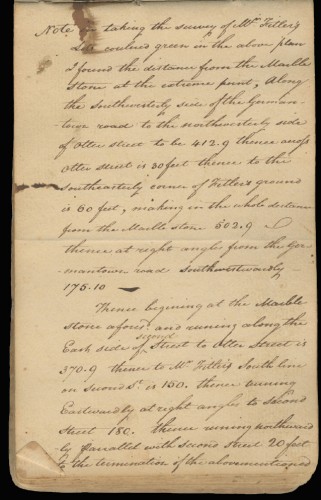 Note in taking the survey of Mr. Fitler's
Lot coulred green in the above plan
I found the distance from the Marble
Stone at the extreme point, Along
the Southwesterly side of the German-
towe road to the northwesterly side
of Otter street to be 412.9 thence across
Otter Street is 30 feet thence to the
southeasterly corner of Fitler's ground
is 60 feet, making in the whole distance
from the Marble stone 502.9
thence at right angles from the Ger-
mantown road Southwestwardly
175.10
Thence begining at the Marble
stone aforesd. and runing along the
East side of second Street to Otter Street is
370.9 thence to Mr. Fitler's South line
on second St. is 160. thence runing
Eastwardly at right angles to second
Street 180. thence runing northward
by Parrallel with second Street 20 feet
to the termination of the abovementioned